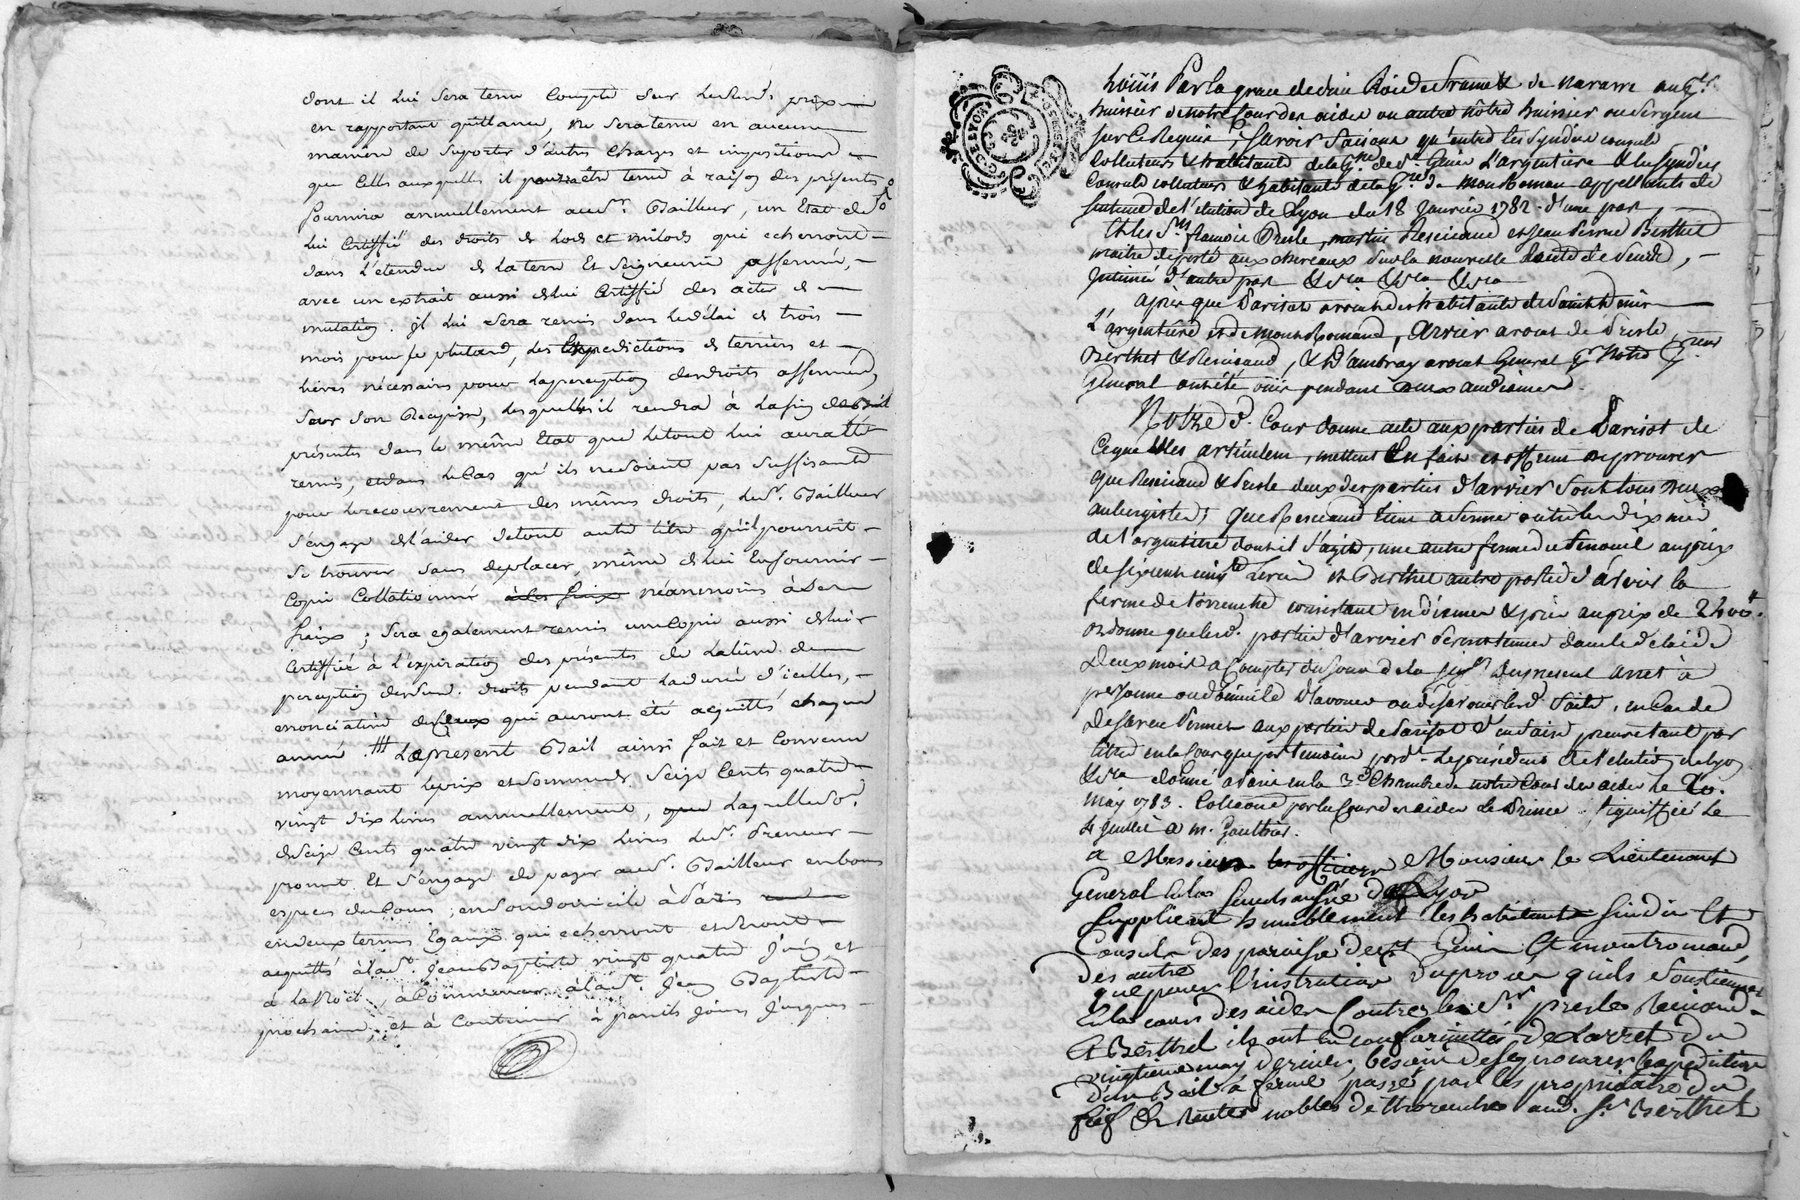 dont il lui sera tenu Compte sur ledit prix
en rapportant quittance, ne sera tenu en aucune
maniere de suporter d'autres charges et impositions
que celles auxquelles il pourra être tenu à raison des présentes
fournira annuellement audr. Bailleur, un Etat de
lui Certiffié des droits de Lods et milods qui echerront
dans l'etendue de la terre Et Seigneurie affermée,
avec un extrait aussi de lui Certiffié des actes de
mutation. Il lui sera remis dans le délai de trois
mois pour le plutard, les Expeditions de terriers et
lièves nécessaires pour la perception des droits affermés,
sous son Recepissé, lesquelles il rendra à la fin des
présentes dans le même Etat que le tout lui aura été
remis, et dans le cas qu'ils ne soient pas suffisants
pour le recouvrement des mêmes droits, ledr. Bailleur
s'engage de l'aider de tout autre titre qu'il pourroit
se trouver sans deplacer, même de lui En fournir
Copie Collationnée à les fraix néanmoins à ses
fraix; sera egalement remis une Copie aussi de lui
Certiffiée à l'expiration des présentes de la lieve de
perception desd. droits pendant la durée d'icelles,
enonciative de Ceux qui auront été acquittés chaque
année. Le present Bail ainsi fait et convenu
moyennant le prix et somme de Seize Cents quatre
vingt dix livres annuellement, que laquelle so.
de Seize Cents quatre vingt dix livres ledr. Preneur
promet Et s'engage de payer audr. Bailleur en bonnes
especes de Cours, en son domicile à Paris
en deux termes Egaux qui echerront et seront
acquittés à la St. Jean Baptiste vingt quatre Juin et
à la Noel, à Commencer à la St. Jean Baptiste
prochaine, et à Continuer à pareils jours jusques
GE. DE LYON
Louis Par la grace de dieu Roi de france & de navarre au pr.
huissier de notre Cour des aides ou autre nôtre huissier ou sergent
sur ce Requis, savoir faisons qu'entre les syndics consuls
Collecteurs & habitants de la p.sse de st. Genis L'argentiere & les syndics
Consuls collecteurs & habitants de la p.sse de Montroman appellants de
sentence de l'election de Lyon du 18 Janvier 1782. d'une part
Et les Srs. françois Presle, martin Ressicaud et Jean pierre Berthet
maitre de poste aux chevaux sur la nouvelle Route de
Intimés d'autre part &ca &ca &ca
apres que Darisot avocat des habitants de Saint Genis
L'argentiere et de Montromand, avocat de Presle
Berthet & Ressicaud, & D'ambray avocat General pr. Notre Pr.eur
General ont été ouis pendant deux audiences.
Notred. Cour donne acte aux parties de Darisot de
Ce que Elles articulent, mettent En fait et offrent de prouver
que Ressicaud & Presle deux des parties d'arrier sont tous deux
aubergistes; que Ressicaud tient a ferme outre les dixmes
de l'argentiere dont il s'agit, une autre ferme de au prix
de six cent et Berthet autre poste d'avoir la
ferme de torrenche consistant en dixmes & prés au prix de 2400#.
ordonne que lesd. parties d'arrier seront tenues dans le délai de
Deux mois a Compter du jour de la sig.on du present arret à
personne ou domicile d'avouer ou désavouer lesd. faits, en Cas de
Desaveu Permet aux parties de Darisot d'en faire preuve tant par
titres en la Cour que par temoins pard. le president de l'election de lyon
&ca donné a Paris en la 3e Chambre de notre Cour des aides le 20.
May 1783. Collationné par la Cour des aides Le Prince. signiffiée le
4 Juillet a M. Gaultier.
a Messieurs les officiers Monsieur le Lieutenant
General En la Senechaussée de Lyon
Supplient humblement les habitants sindics Et
Consuls des paroisses de st. Genis Et montromand,
des autre
que pour l'instruction du procès quils soutiennent
En la cour des aides Contre les Srs. presle Reciaud
& Berthet ils ont En conformité de Larret du
vingtieme may dernier, besoin de se procurer l'expedition
D'un Bail a ferme passé par les proprietaires du
fief Et rentes nobles de thorenche aud. Sr. Berthet